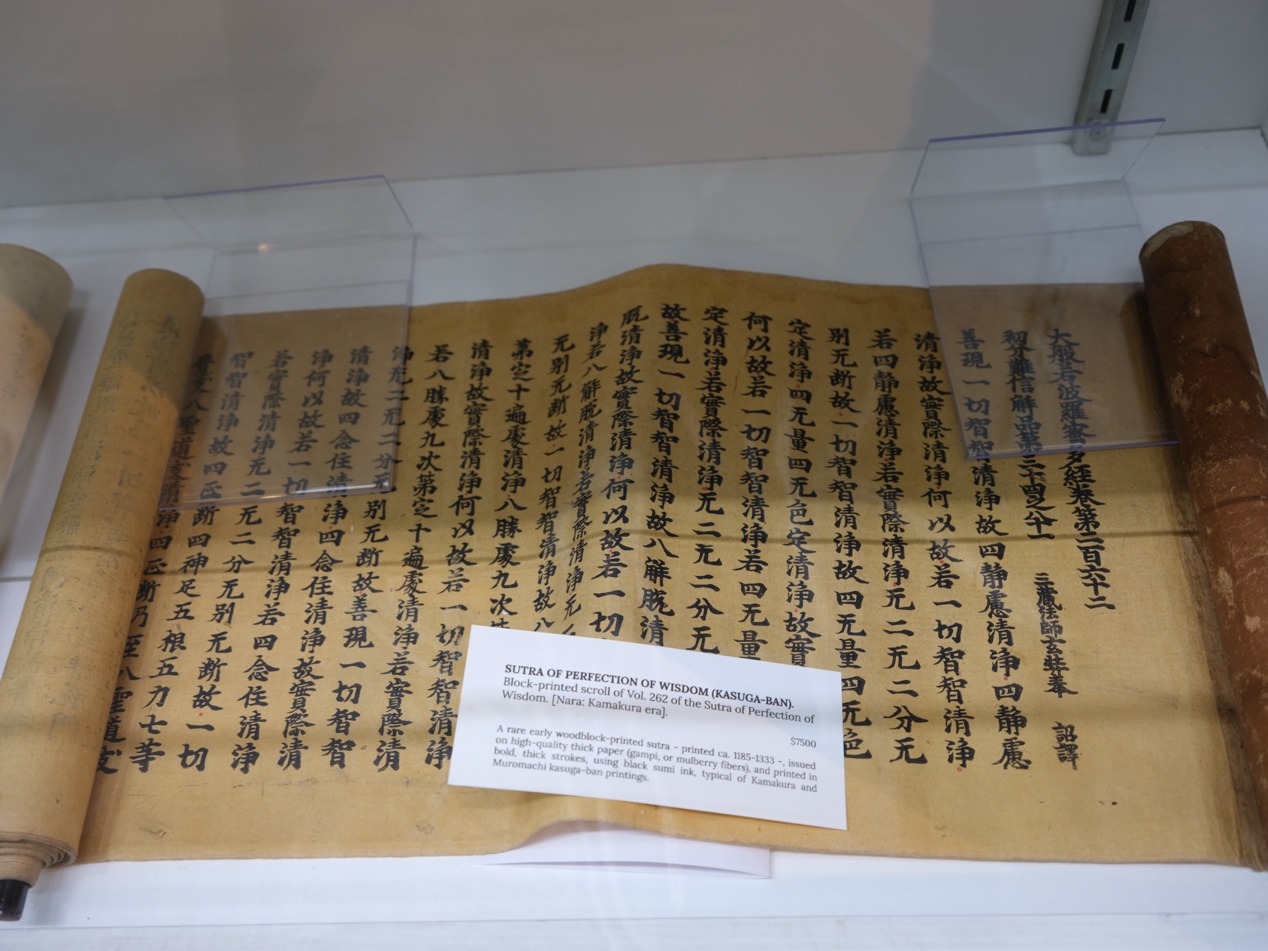 大般若波羅蜜多經卷第二百六十二
初分難信解品第三十四之八十一 三藏法師玄奘奉 詔譯
善現一切智智清淨故四靜慮清淨四靜慮
清淨故實際清淨何以故若一切智智清淨
若四靜慮清淨若實際清淨无二无二分无
別无斷故一切智智清淨故四无量四无色
定清淨四无量四无色定清淨故實
何以故若一切智智清淨若四无量
定清淨若實際清淨无二无二分无
故善現一切智智清淨故八解脫清
脫清淨故實際清淨何以故若一切
淨若八解脫清淨若實際清淨无
无別无斷故一切智智清淨故八
第定十遍處清淨八勝處九次
清淨故實際清淨何以故若一切智智清淨
若八勝處九次第定十遍處清淨若實際清
淨无二无二分无別无斷故善現一切智智
清淨故四念住清淨四念住清淨故實際清
淨何以故若一切智智清淨若四念住清淨
若實際清淨无二无二分无別无斷故一切
智智清淨故四正斷四神足五根五力七等
覺支八聖道支清淨四正斷乃至八聖道支
SUTRA OF PERFECTION OF WISDOM (KASUGA-BAN).
Block-printed scroll of Vol. 262 of the Sutra of Perfection of
Wisdom. [Nara: Kamakura era].
$7500
A rare early woodblock-printed sutra - printed ca. 1185-1333 -, issued
on high-quality thick paper (gampi, or mulberry fibers), and printed in
bold, thick strokes, using black sumi ink, typical of Kamakura and
Muromachi kasuga-ban printings.